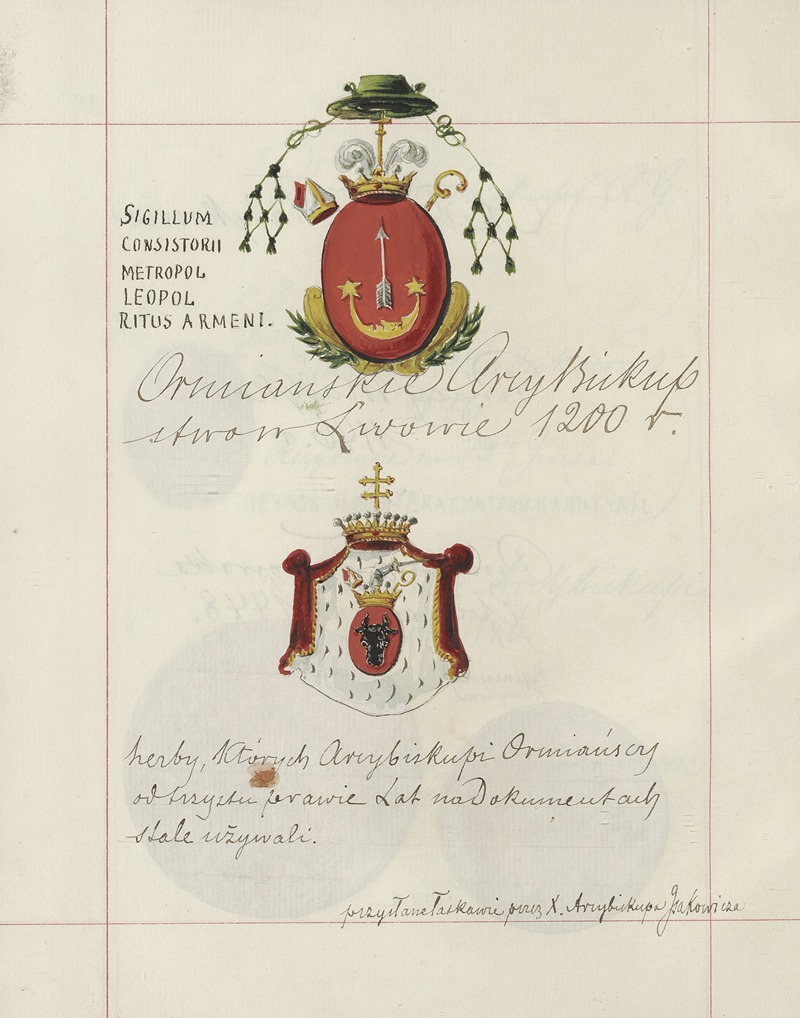 SIGILLUM
CONSISTORII
METROPOL
LEOPOL
RITUS ARMENI.
Ormianskie ArcyBiskup
stwo w Lwowie 1200 r.
herby, których Arcybiskupi Ormiańscy
od trzystu prawie Lat na Dokumentach
stale używali.
przysłane łaskawie przez X. Arcybiskupa Isakowicza